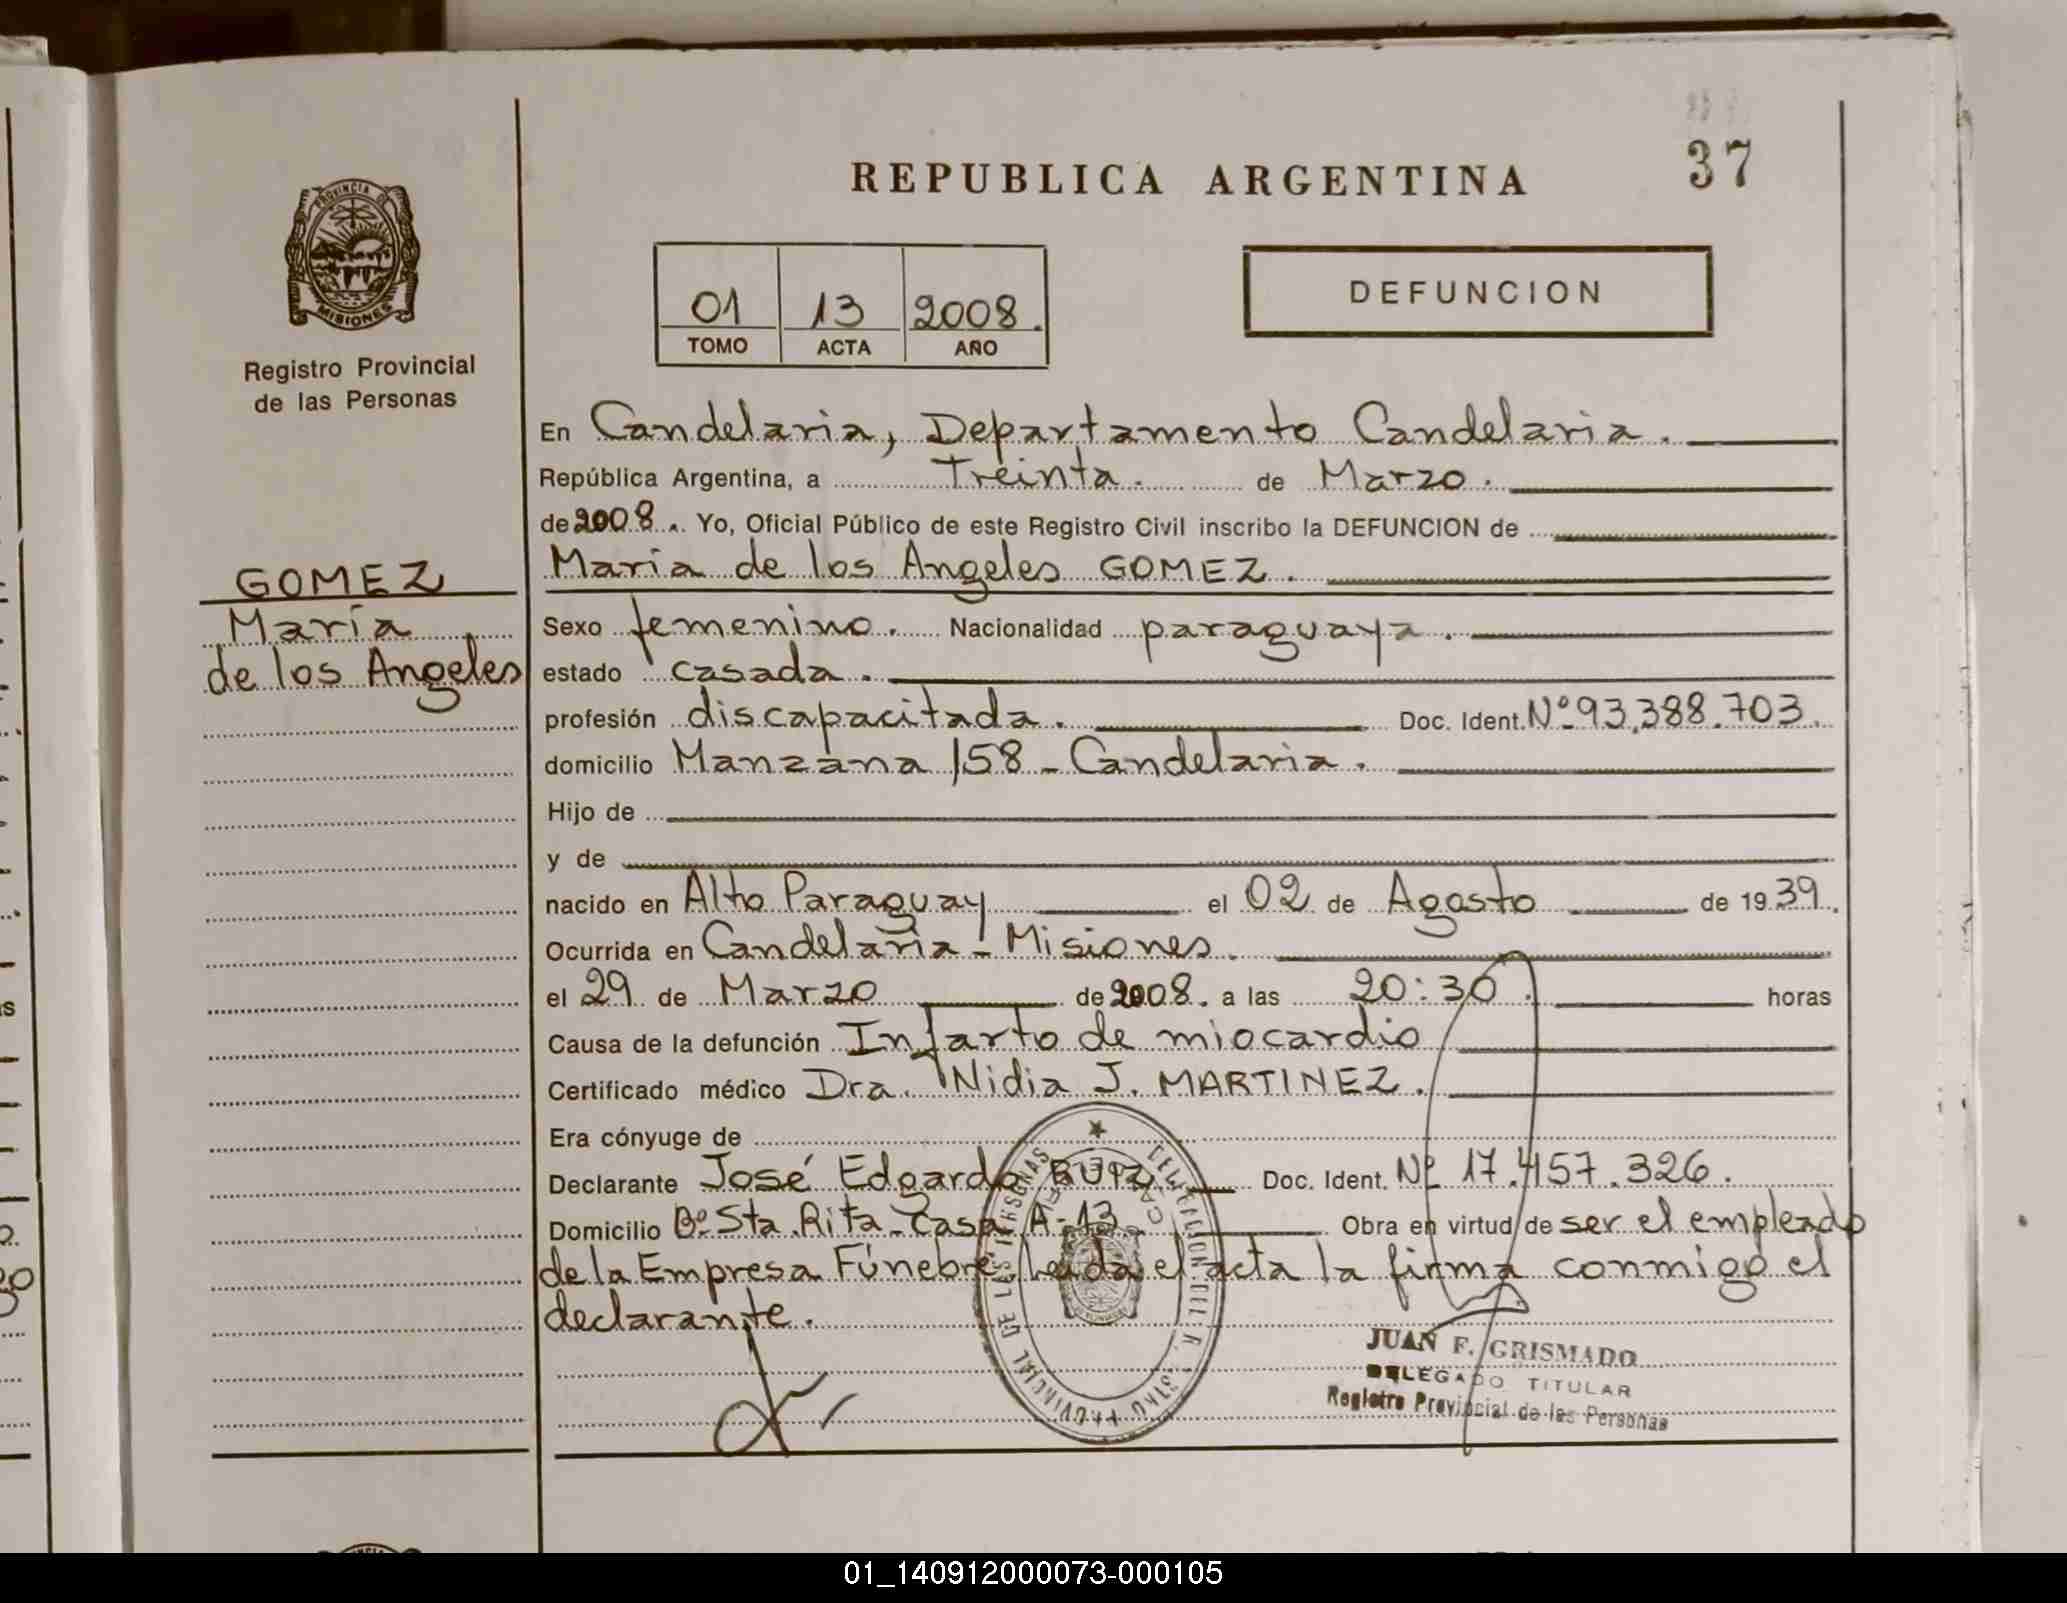 REPUBLICA ARGENTINA
37
PROVINCIA DE
MISIONES
Registro Provincial
de las Personas
01 13 2008.
TOMO ACTA AÑO
DEFUNCION
GOMEZ
María
de los Angeles
En Candelaria, Departamento Candelaria.
República Argentina, a Treinta. de Marzo.
de 2008. Yo, Oficial Público de este Registro Civil inscribo la DEFUNCION de
María de los Angeles GOMEZ.
Sexo femenino. Nacionalidad paraguaya.
estado casada.
profesión discapacitada. Doc. Ident. Nº 93.388.703.
domicilio Manzana 158 - Candelaria.
Hijo de
y de
nacido en Alto Paraguay el 02 de Agosto de 1939.
Ocurrida en Candelaria - Misiones.
el 29 de Marzo de 2008. a las 20:30. horas
Causa de la defunción Infarto de miocardio
Certificado médico Dra. Nidia J. MARTINEZ.
Era cónyuge de
Declarante José Edgardo Doc. Ident. Nº 17.457.326.
Domicilio Bº Sta. Rita - Casa A-13. Obra en virtud de ser el empleado
de la Empresa Fúnebre. Leída el acta la firma conmigo el
declarante.
JUAN F. GRISMADO
DELEGADO TITULAR
Registro Provincial de las Personas
01_140912000073-000105